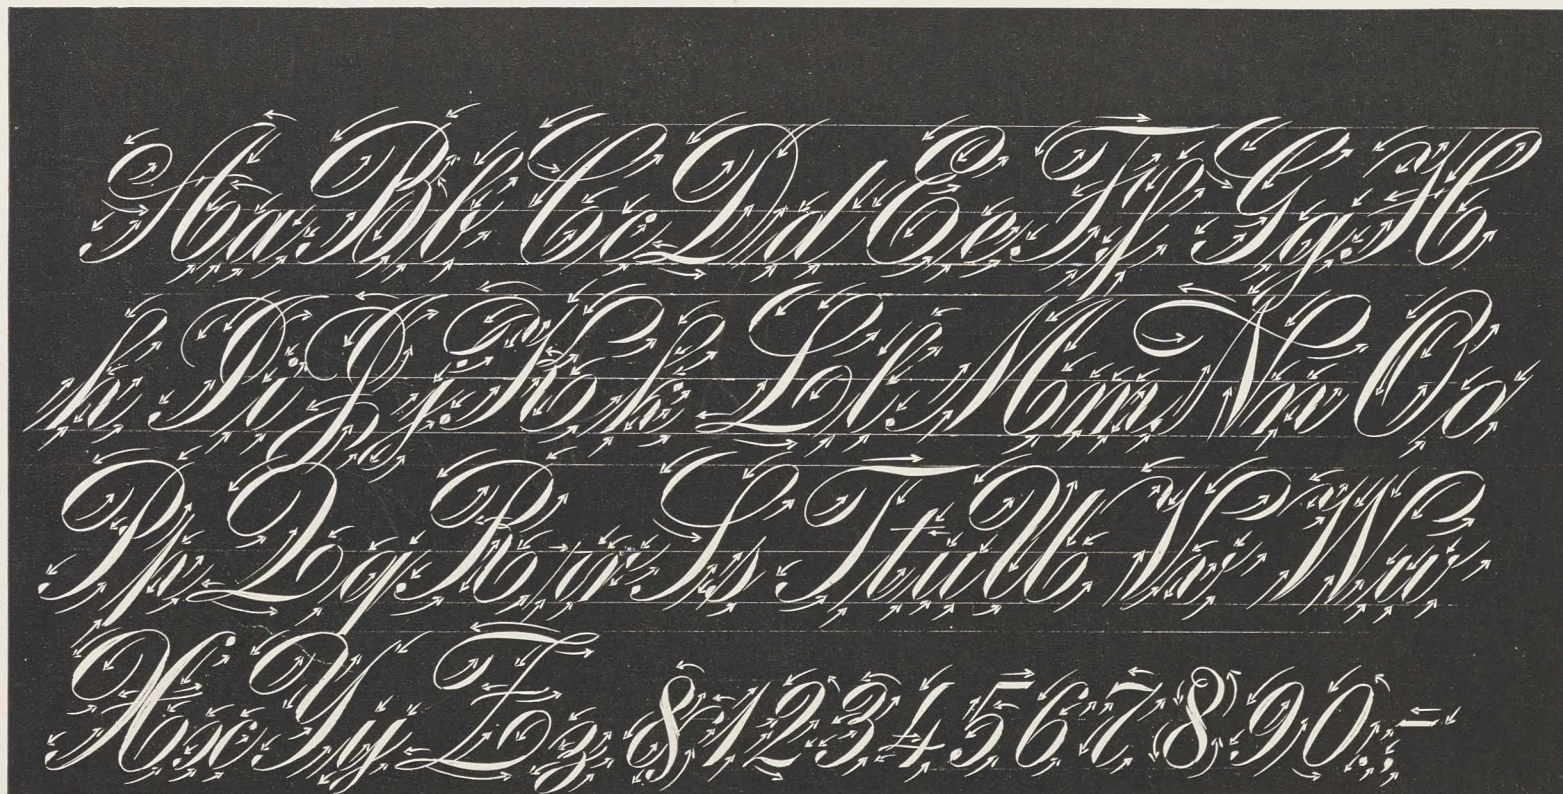 Aa Bb Cc Dd Ee Ff Gg H
h Ii Jj Kk Ll Mm Nn Oo
Pp Qq Rr Ss Tt uU Vv Ww
Xx Yy Zz & 1 2 3 4 5 6 7 8 9 0 . , -